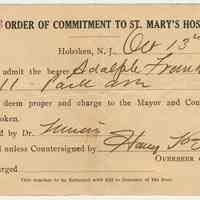 ORDER OF COMMITMENT TO ST. MARY'S HOS
Hoboken, N. J., Oct 13
admit the bearer Adolph
11 - Park ave
deem proper and charge to the Mayor and Coun
oken.
d by Dr.
d unless Countersigned by Harry
OVERSEER O
arged
This voucher to be Returned with Bill to Overseer of the Poor